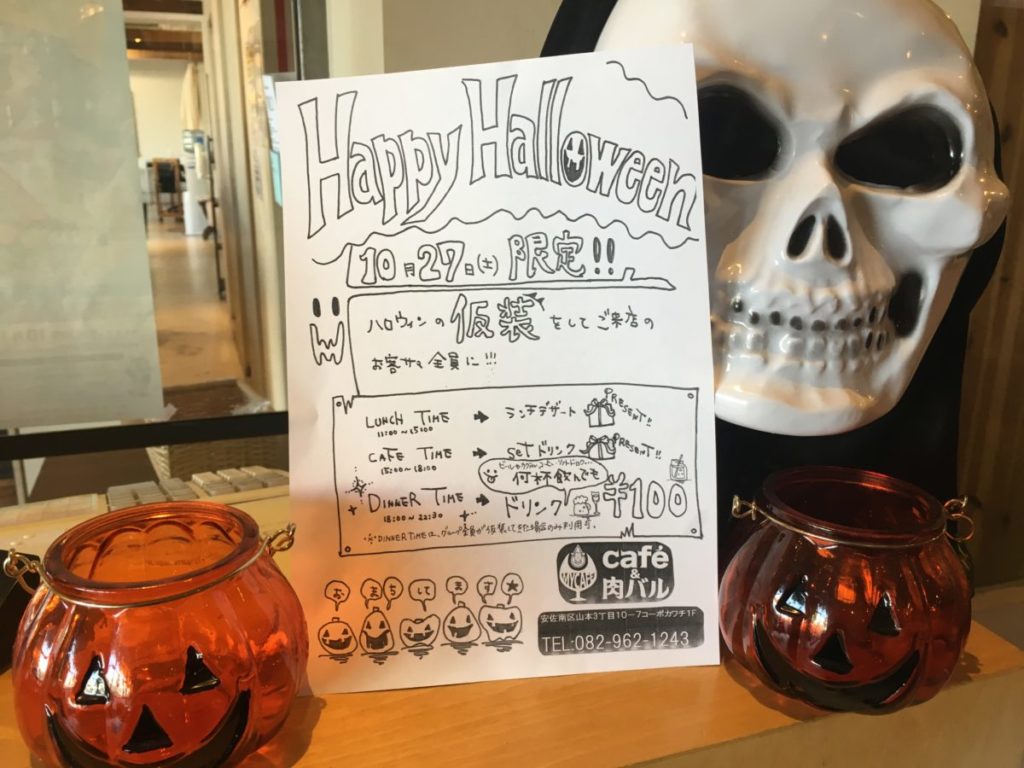 Happy Halloween
10月27日(土) 限定!!
ハロウィンの仮装をしてご来店の
お客サマ全員に!!!
LUNCH TIME → ランチデザート PRESENT!!
11:00~15:00
CAFE TIME → SETドリンク PRESENT!!
15:00~18:00
何杯飲んでも
DINNER TIME → ドリンク ¥100
18:00~22:30
DINNER TIMEは、グループ全員が仮装してきた場合のみ利用可。
おまちしてます★
MYCAFE
café
&
肉バル
安佐南区山本3丁目10-7コーポカワチ1F
TEL:082-962-1243